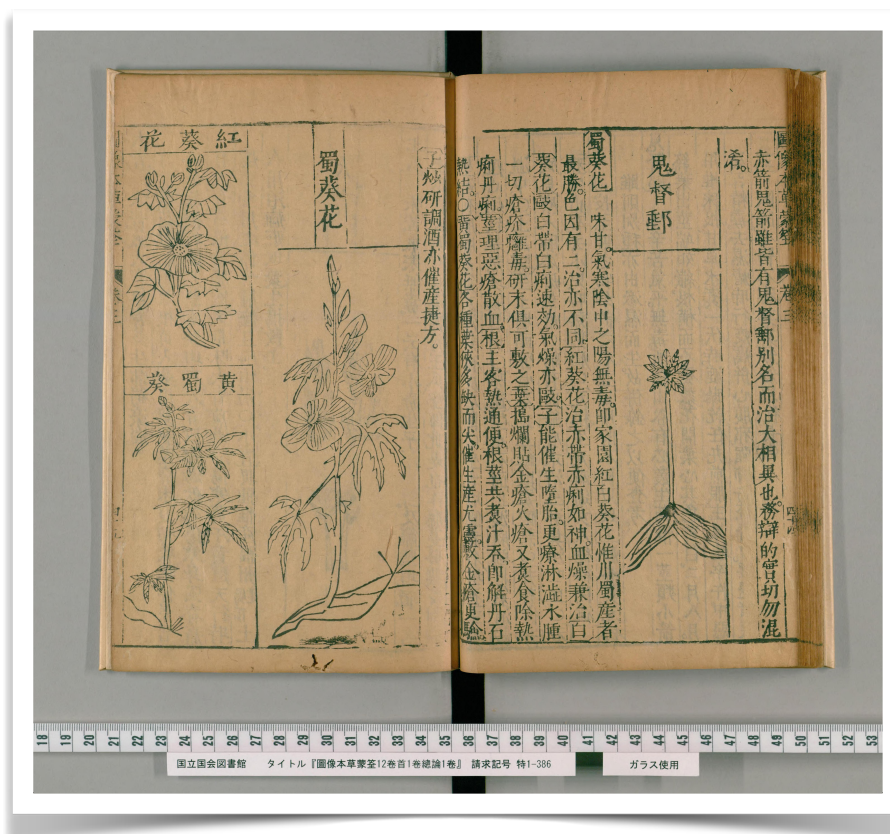 圖像本草蒙筌
卷三
赤箭鬼箭雖皆有鬼督郵別名而治大相異也務辯的實切勿混
淆。
鬼督郵
蜀葵花 味甘。氣寒陰中之陽無毒。即家園紅白葵花惟川蜀產者
最勝。色因有二治亦不同。紅葵花治赤帶赤痢如神。血燥兼治白
葵花敺白帶白痢速効。氣燥亦敺。子能催生墮胎。更療淋澁水腫
一切瘡疥癰毒。研末俱可敷之。葉搗爛貼金瘡火瘡又煑食除熱
痢丹痢。莖理惡瘡散血。根主客熱通便。根莖共煑汁吞即解丹石
熱結。○黃蜀葵花各種葉俠多缺而尖催生產尤靈敷金瘡更驗
子炒研調酒亦催產捷方。
蜀葵花
紅葵花
黃蜀葵
卷三
18 19 20 21 22 23 24 25 26 27 28 29 30 31 32 33 34 35 36 37 38 39 40 41 42 43 44 45 46 47 48 49 50 51 52 53
国立国会図書館 タイトル『圖像本草蒙筌12巻首1巻總論1巻』 請求記号 特1-386
ガラス使用